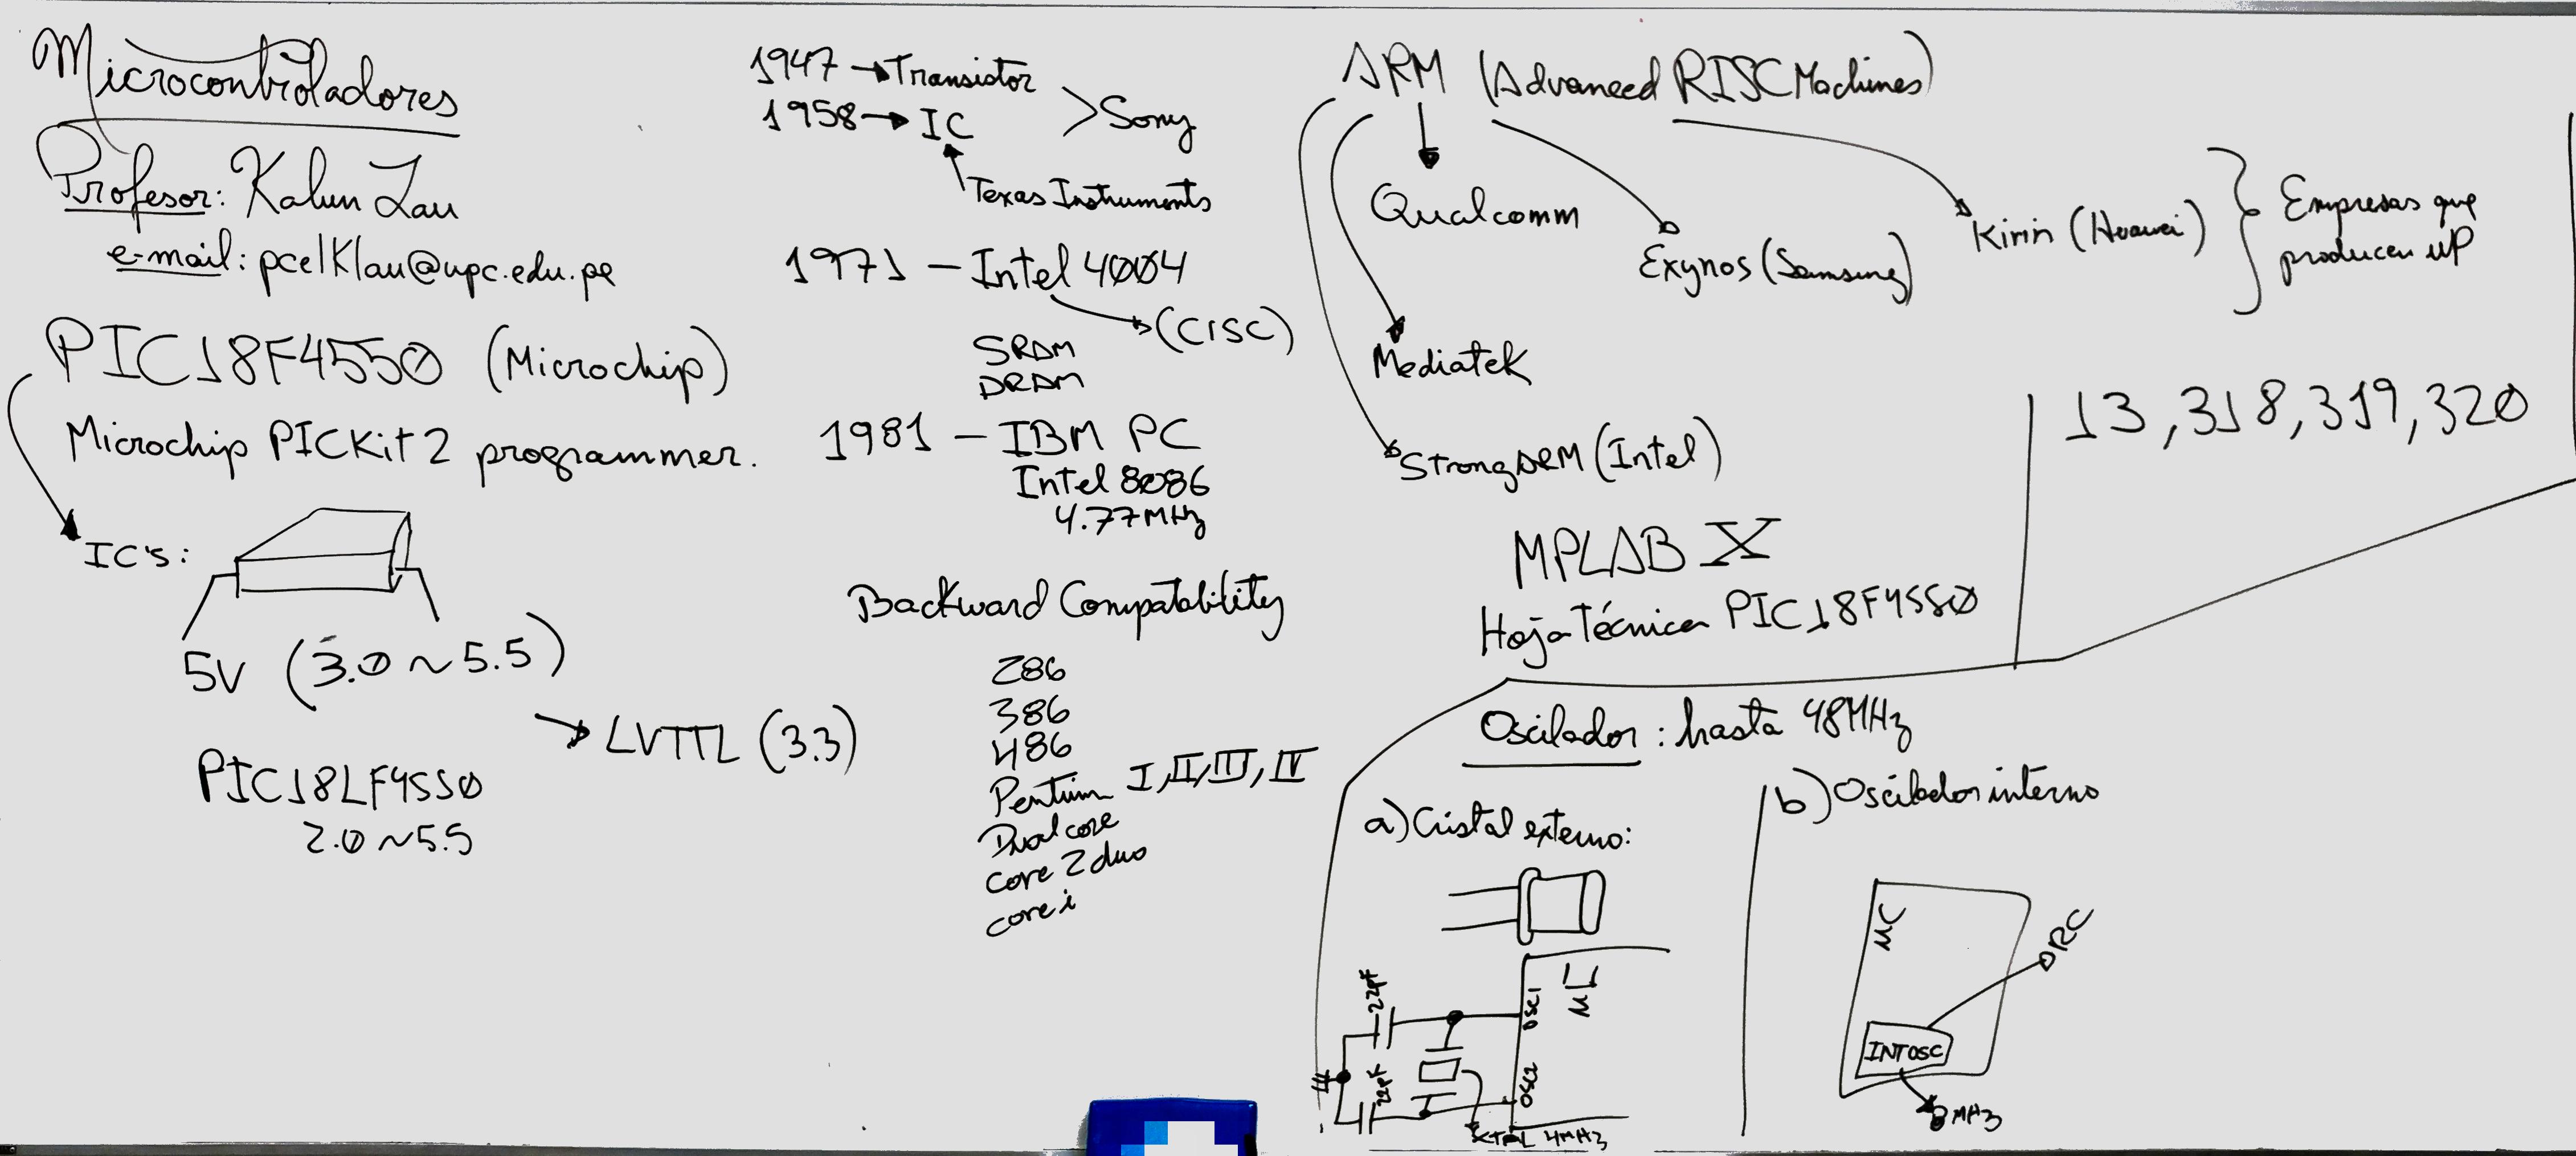 Microcontroladores
Profesor: Kalun Lau
e-mail: pcelklau@upc.edu.pe
PIC18F4550 (Microchip)
Microchip PICKit2 programmer.
IC's:
5V (3.0 ~ 5.5)
LVTTL (3.3)
PIC18LF4550
2.0 ~ 5.5
1947 → Transistor
1958 → IC
> Sony
Texas Instruments
1971 - Intel 4004
(CISC)
SRAM
DRAM
1981 - IBM PC
Intel 8086
4.77MHz
Backward Compatability
286
386
486
Pentium I, II, III, IV
Dual core
core 2 duo
core i
ARM (Advanced RISC Machines)
Qualcomm
Exynos (Samsung)
Kirin (Huawei)
Empresas que
producen uP
Mediatek
StrongARM (Intel)
13,318,319,320
MPLAB X
Hoja Técnica PIC18F4550
Oscilador: hasta 48MHz
a) Cristal externo:
22pF
22pF
OSC1
OSC2
uC
XTAL 4MHz
b) Oscilador interno
uC
RC
INTOSC
8MHz